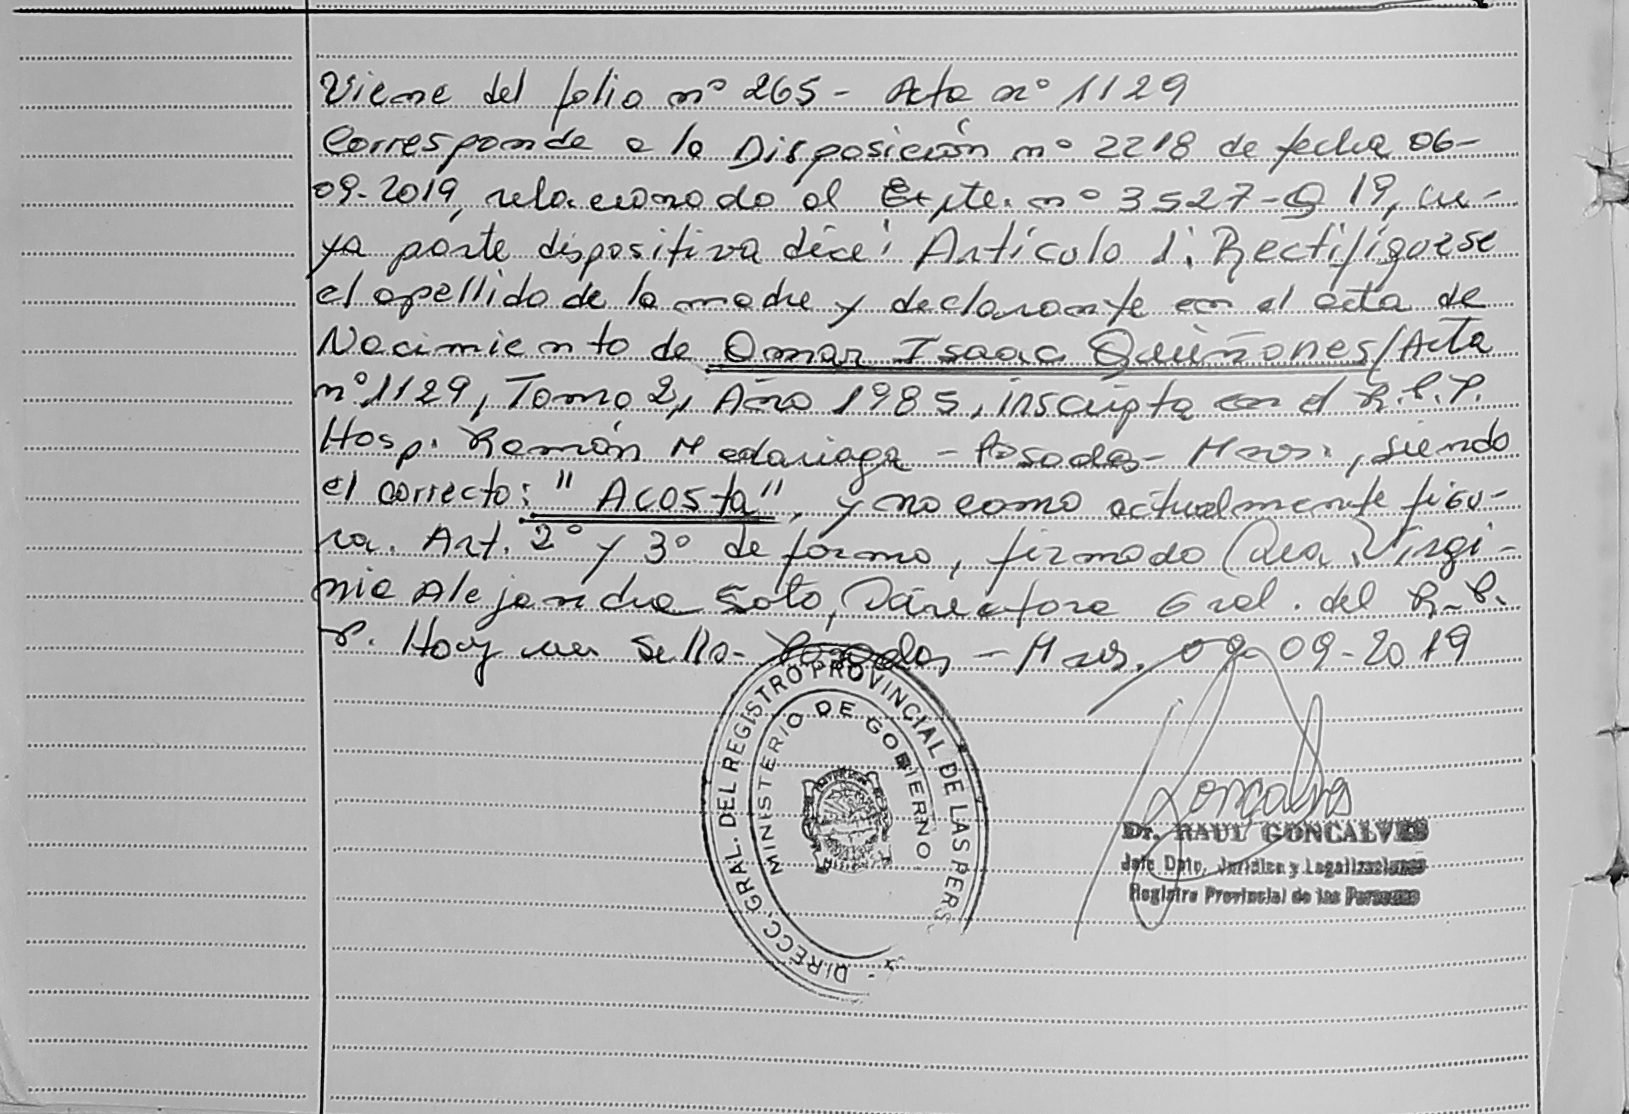 Viene del folio nº 265 - Acta nº 1129
Corresponde a la Disposición nº 2218 de fecha 06-
09-2019, relacionado al Expte. nº 3527-Q 19, cu-
ya parte dispositiva dice: Artículo 1: Rectifíquese
el apellido de la madre y declarante en el acta de
Nacimiento de Omar Isaac Quiñones/Acta
nº 1129, Tomo 2, Año 1985, inscripta en el R.P.P.
Hosp. Ramón Madariaga - Posadas - Mnes., siendo
el correcto: "Acosta", y no como actualmente figu-
ra. Art. 2º y 3º de forma, firmado Virgi-
nia Alejandra Soto, Directora Gral. del R.P.
P. Hay un sello - Posadas - Mnes. 09-2019
DIRECC. GRAL. DEL REGISTRO PROVINCIAL DE LAS PERS
MINISTERIO DE GOBIERNO
Goncalves
Dr. RAUL GONCALVES
Jefe Dpto. Jurídica y Legalizaciones
Registro Provincial de las Personas